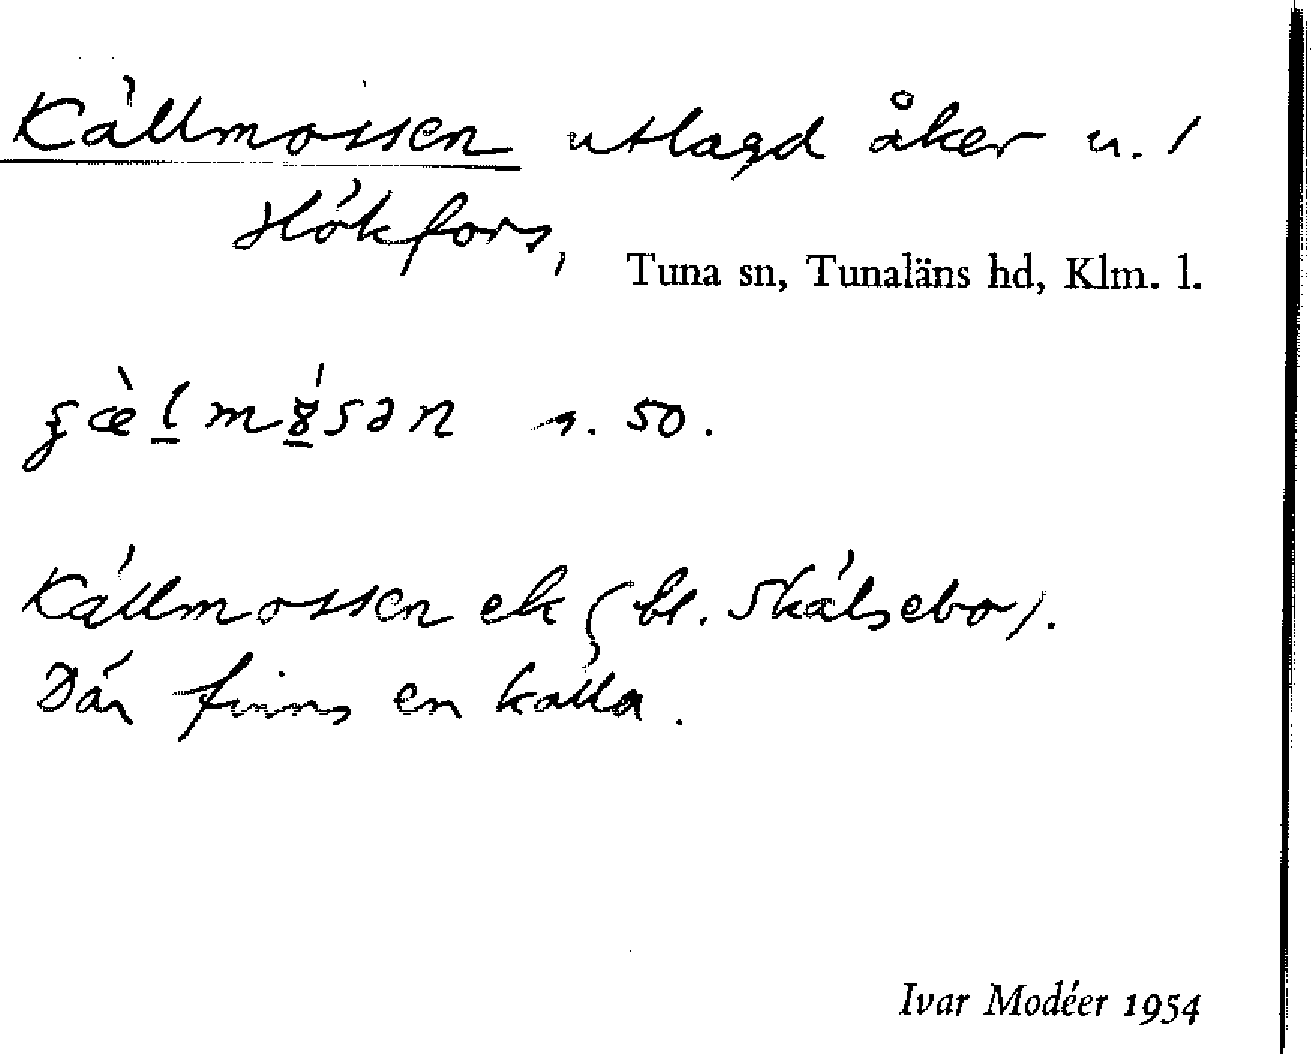 Källmossen utlagd åker u. /
Hökfors,
Tuna sn, Tunaläns hd, Klm. l.
s. 50.
Källmossen ek (bl. Skälsebo).
Där finns en källa.
Ivar Modéer 1954